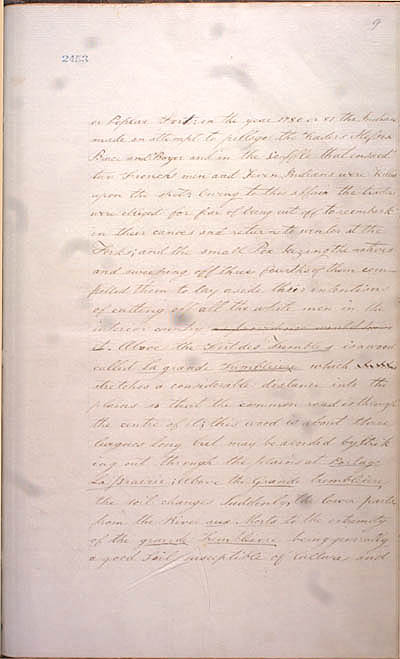 9
2453
or Poplar Fort; in the year 1780 or 81 the Indians
made an attempt to pillage the traders Messrs
Bruce and Boyer and in the scuffle that ensued
two French men and seven Indians were killed
upon the spot; owing to this affair the traders
were obliged for fear of being cut off to reembark
in their canoes and return to winter at the
Forks; and the small Pox seizing the natives
and sweeping off three fourths of them com-
pelled them to lay aside their intentions
of cutting off all the white men in the
interior country
it. Above the Fort des Trembles is a wood
called la grande Trembliere which
stretches a considerable distance into the
plains so that the common road is through
the centre of it; this wood is about three
leagues long but may be avoided by strik
ing out through the plains at Portage
La Prairie; above the Grande Trembliere
the soil changes suddenly, the lower parts
from the River aux Morts to the extremity
of the grande Trembliere being generally
a good soil susceptible of culture and